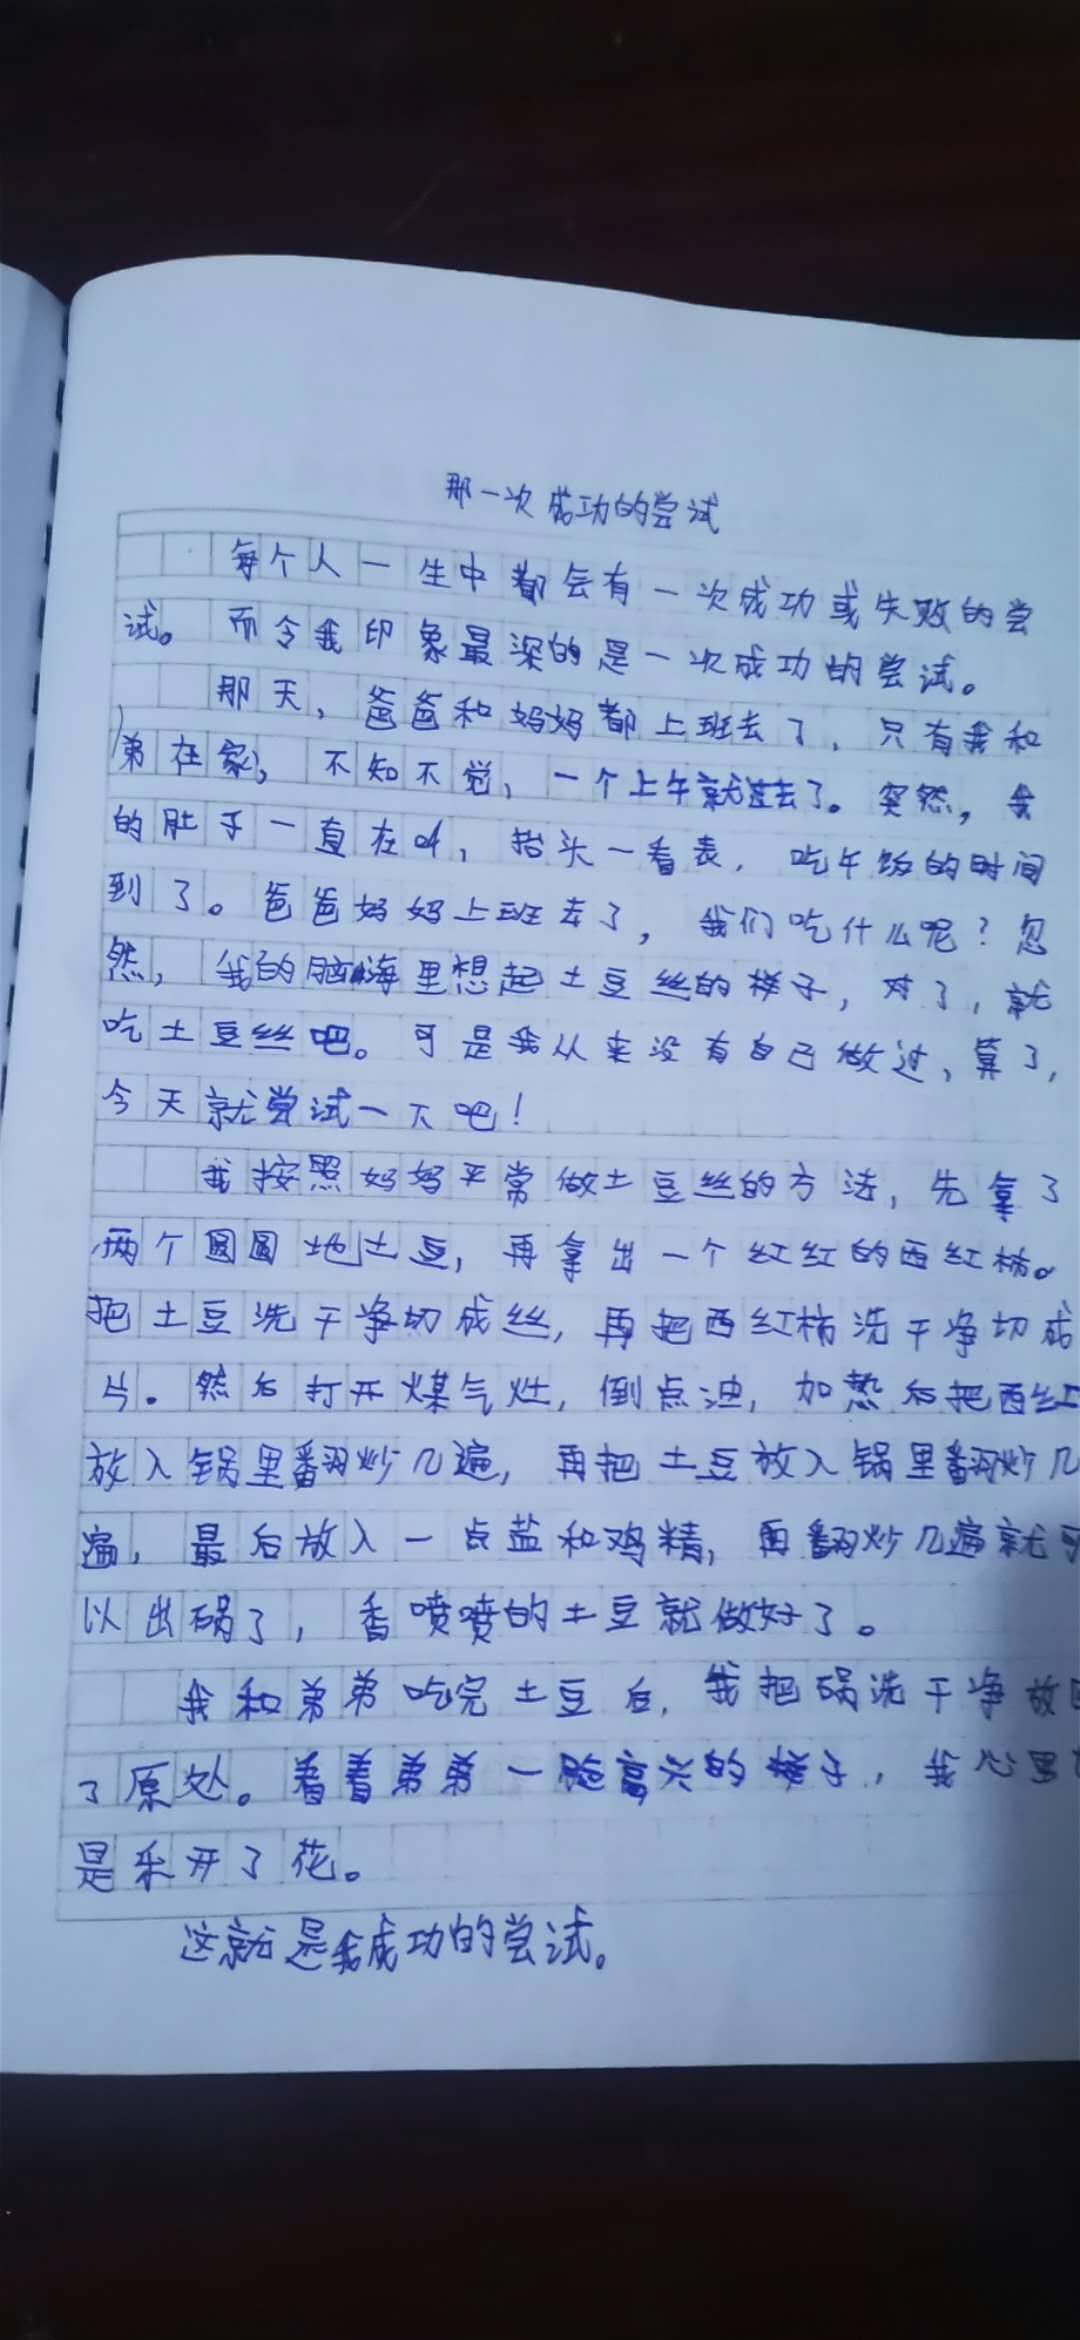 那一次成功的尝试
每个人一生中都会有一次成功或失败的尝
试。而令我印象最深的是一次成功的尝试。
那天，爸爸和妈妈都上班去了，只有我和
弟在家，不知不觉，一个上午就过去了。突然，我
的肚子一直在叫，抬头一看表，吃午饭的时间
到了。爸爸妈妈上班去了，我们吃什么呢？忽
然，我的脑海里想起土豆丝的样子，对了，就
吃土豆丝吧。可是我从来没有自己做过，算了，
今天就尝试一下吧！
我按照妈妈平常做土豆丝的方法，先拿了
两个圆圆地土豆，再拿出一个红红的西红柿。
把土豆洗干净切成丝，再把西红柿洗干净切成
片。然后打开煤气灶，倒点油，加热后把西红
放入锅里翻炒几遍，再把土豆放入锅里翻炒几
遍，最后放入一点盐和鸡精，再翻炒几遍就可
以出锅了，香喷喷的土豆就做好了。
我和弟弟吃完土豆后，我把锅洗干净放回
了原处。看着弟弟一脸高兴的样子，我心里
是乐开了花。
这就是我成功的尝试。